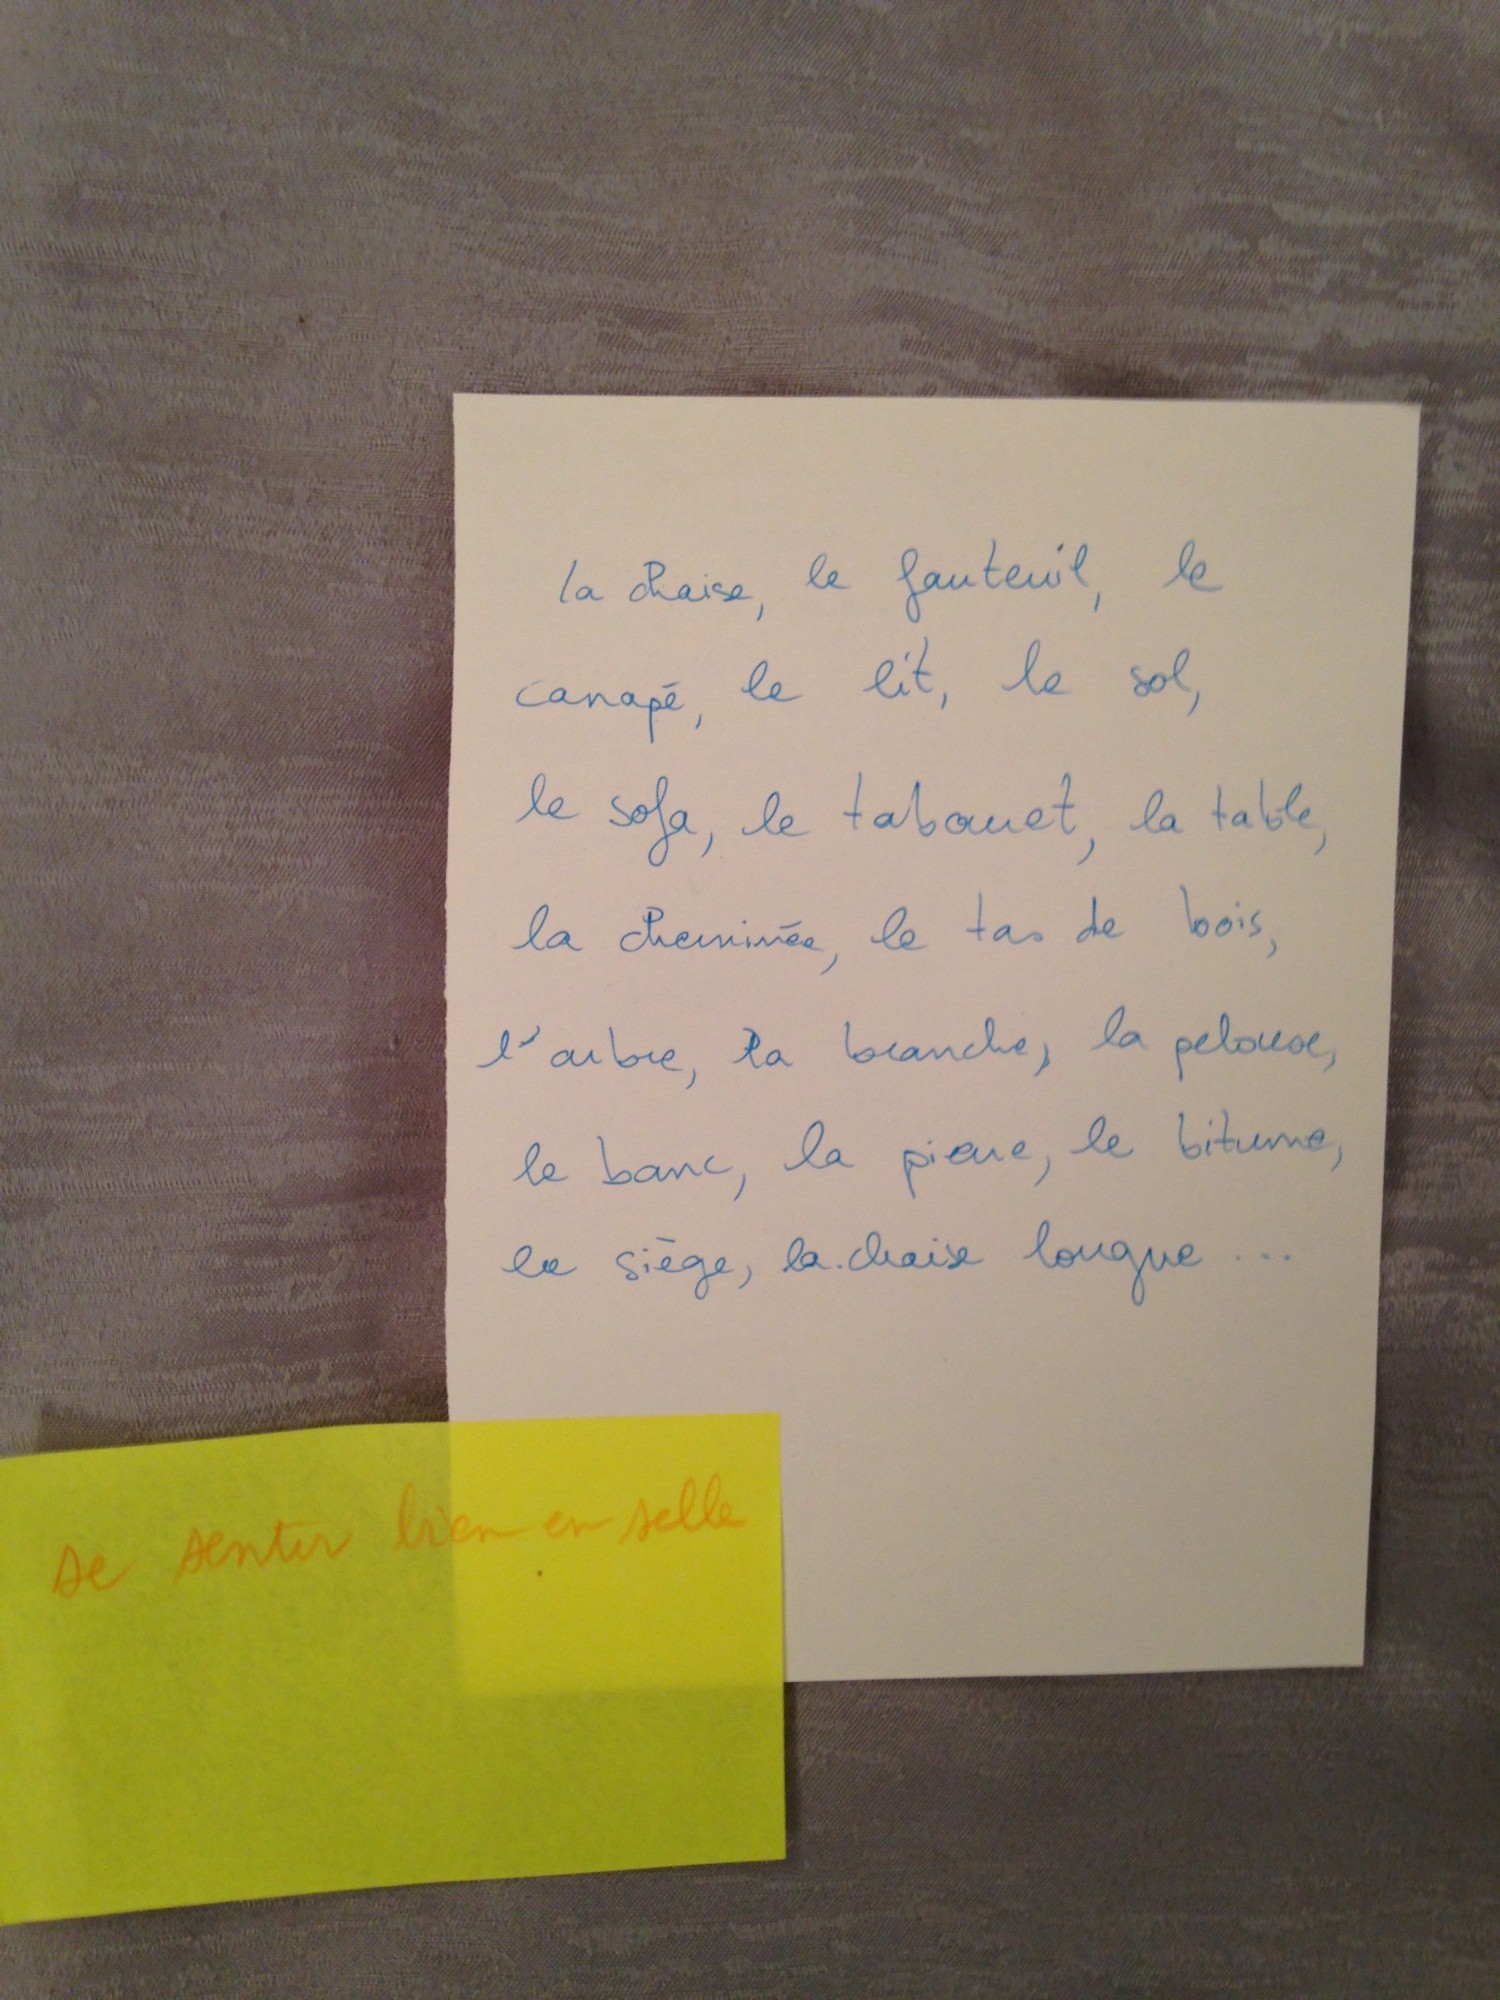 la chaise, le fauteuil, le
canapé, le lit, le sol,
le sofa, le tabouret, la table,
la cheminée, le tas de bois,
l'arbre, la branche, la pelouse,
le banc, la pierre, le bitume,
le siège, la chaise longue ...
se sentir bien en selle